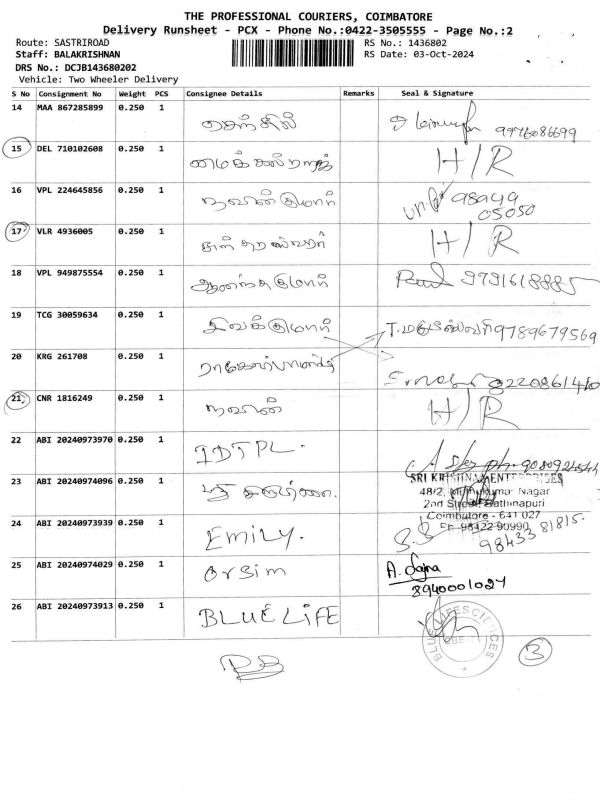 THE PROFESSIONAL COURIERS, COIMBATORE
Delivery Runsheet - PCX - Phone No.:0422-3505555 - Page No.:2
Route: SASTRIROAD RS No.: 1436802
Staff: BALAKRISHNAN RS Date: 03-Oct-2024
DRS No.: DCJB143680202
Vehicle: Two Wheeler Delivery
S No Consignment No Weight PCS Consignee Details Remarks Seal & Signature
14 MAA 867285899 0.250 1 செந்தில் 9976086699
15 DEL 710102608 0.250 1 H/R
16 VPL 224645856 0.250 1 நவீன்குமார் 98949
05050
17 VLR 4936005 0.250 1 H/R
18 VPL 949875554 0.250 1 ஆனந்தகுமார் 9791618885
19 TCG 30059634 0.250 1 சிவக்குமார் 9789679569
20 KRG 261708 0.250 1 8220861410
21 CNR 1816249 0.250 1 நவீன் H/R
22 ABI 20240973970 0.250 1 IDTPL.
23 ABI 20240974096 0.250 1 SRI KRISHNA ENTERPRISES
48/2, Muthukumar Nagar
2nd Street, Rathinapuri
Coimbatore - 641 027
Ph 98422 90990
24 ABI 20240973939 0.250 1 EMILY. 98433 81815.
25 ABI 20240974029 0.250 1 Orsim A. Sajna
8940001027
26 ABI 20240973913 0.250 1 BLUE LIFE BLUE LIFESCIENCES
3